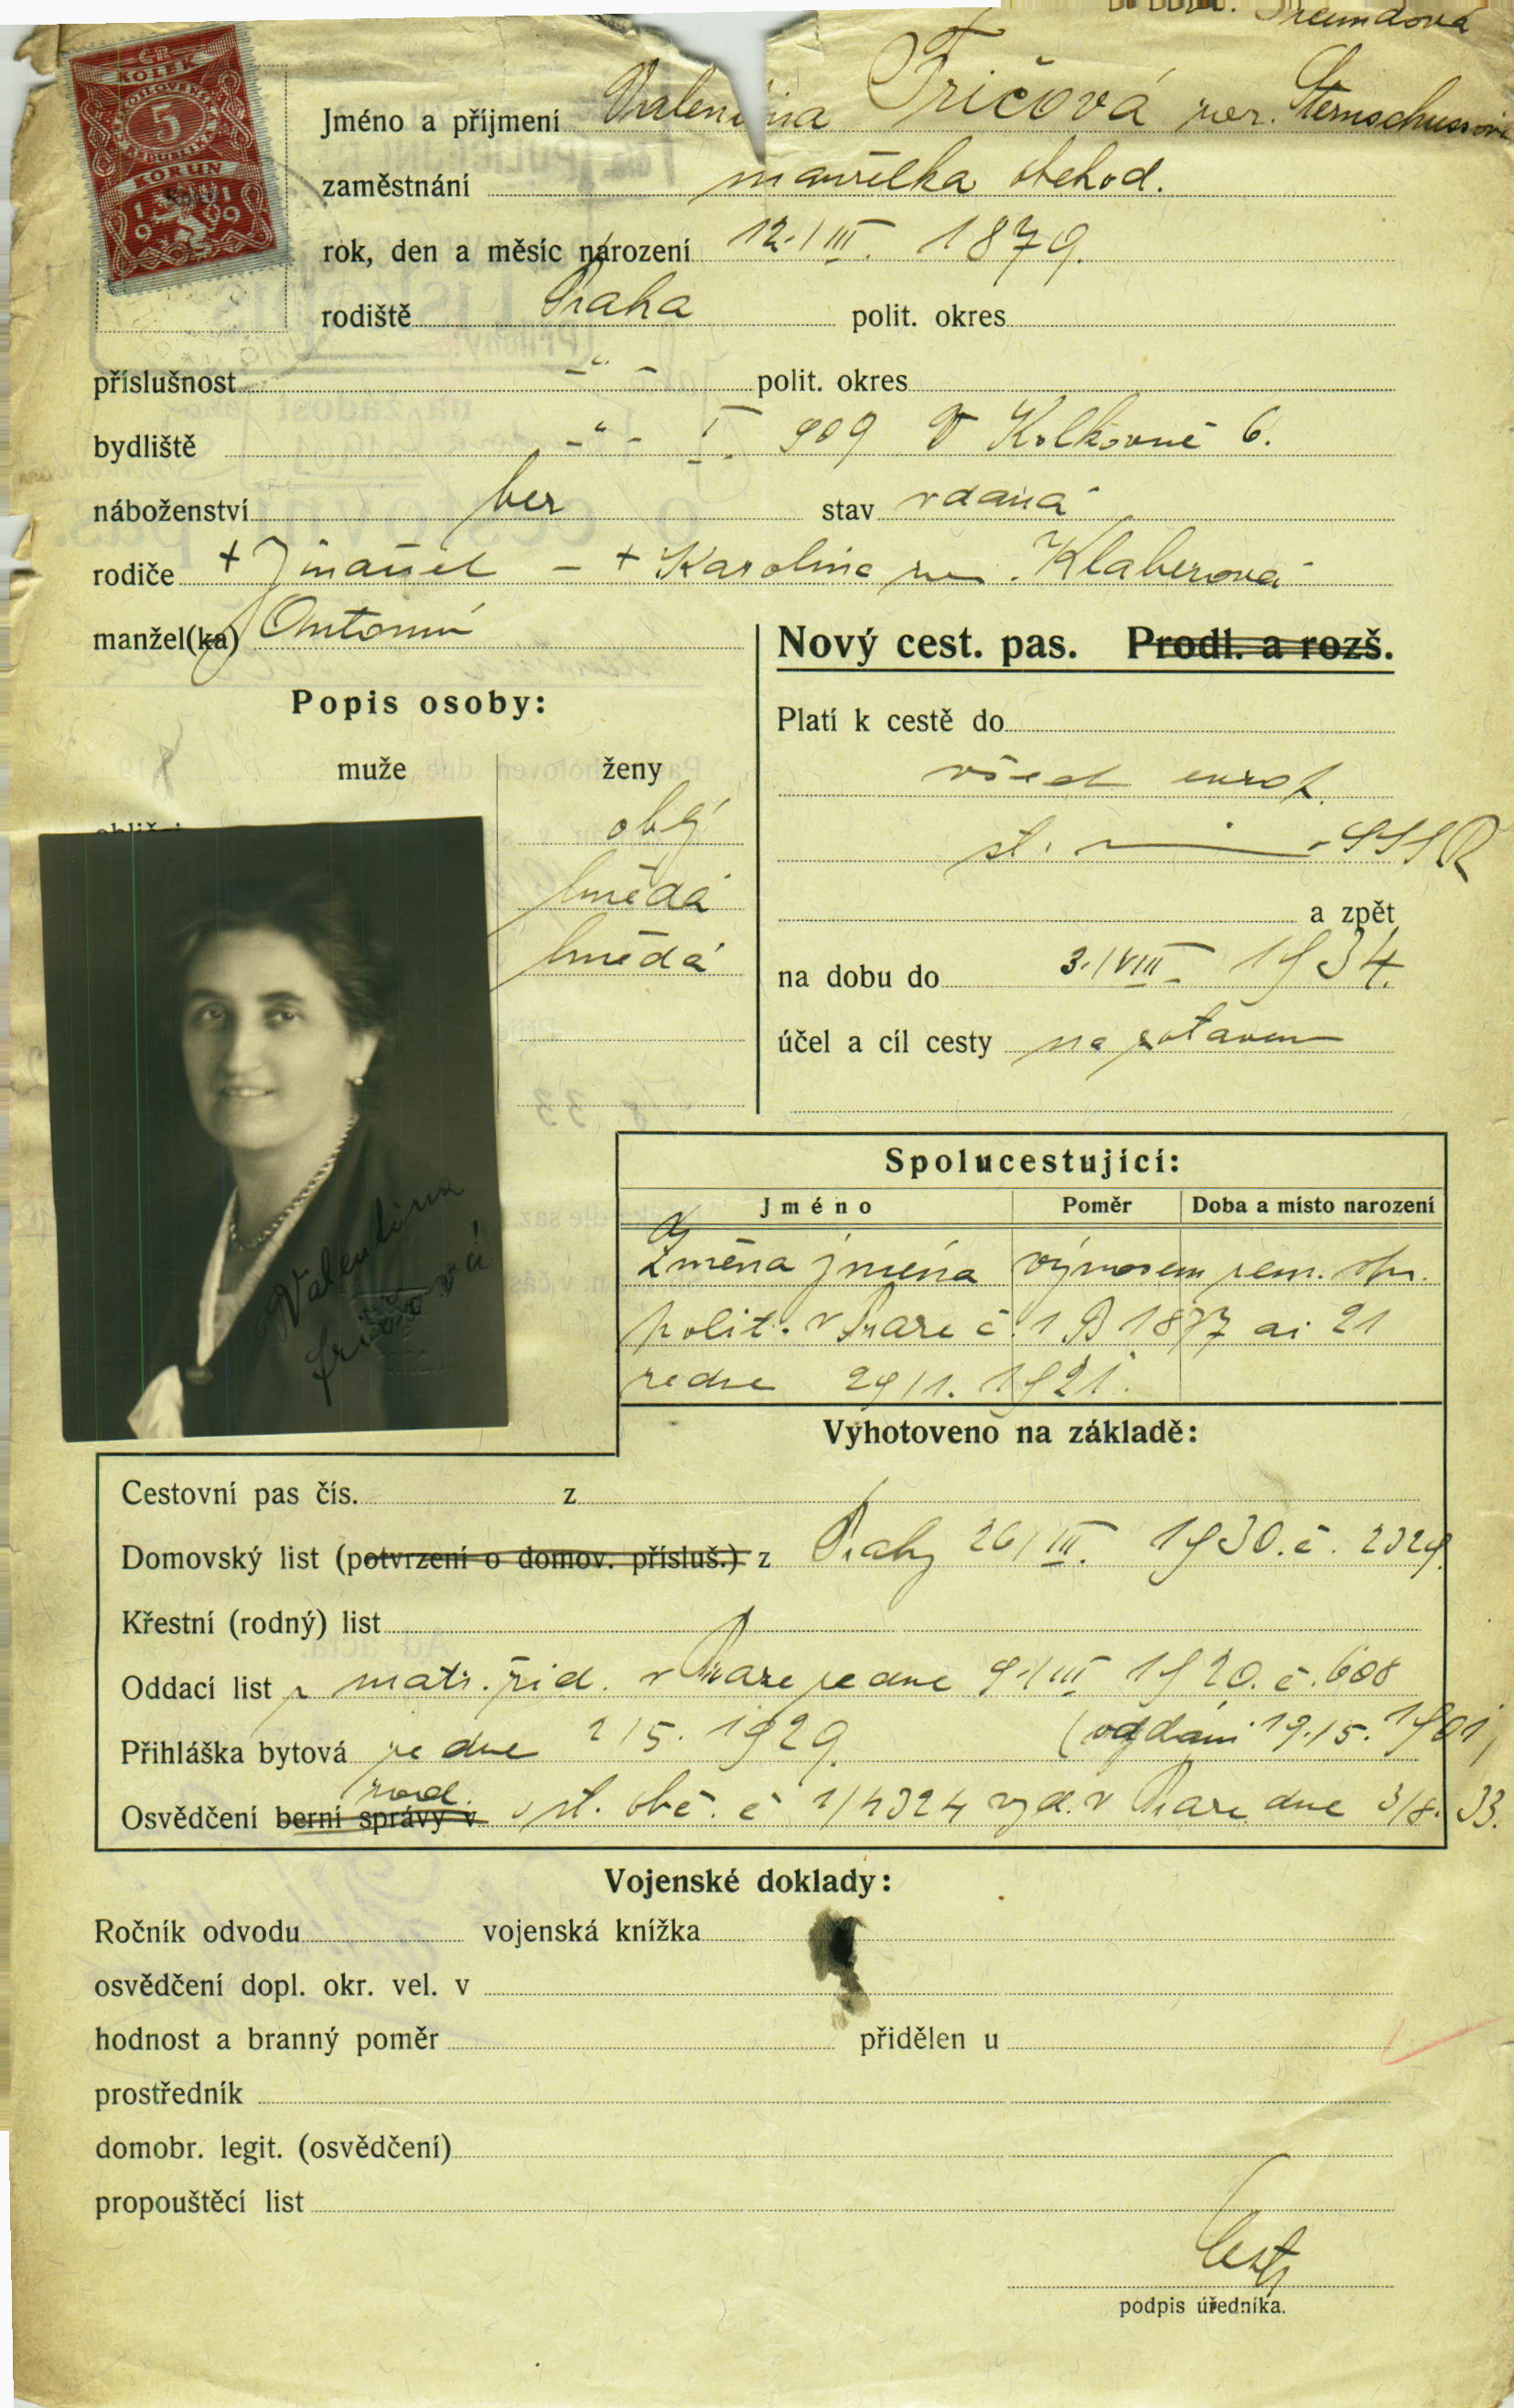 ČR.
KOLEK
5
KORUN
1919
Jméno a příjmení Valentina Fričová roz. Sternschussová
zaměstnání manželka obchod.
rok, den a měsíc národzení 12./III. 1879.
rodiště Praha polit. okres
příslušnost -"- polit. okres
bydliště -"- I. 909 V Kolkovně 6.
náboženství bez stav vdaná
rodiče + Ignác - + Karolina roz. Klaberová
manžel(ka) Antonín
Nový cest. pas. Prodl. a rozš.
Popis osoby:
Platí k cestě do
muže ženy
všech evrop.
oblý
st. - SSSR
hnědá
a zpět
hnědá
na dobu do 3./VIII. 1934.
účel a cíl cesty na zotavenou
Spolucestující:
Jméno Poměr Doba a místo narození
Změna jména výnosem zem. spr.
polit. v Praze č. 1 B 1877 ai 21
ze dne 29/1. 1921.
Valentina
Fričová
Vyhotoveno na základě:
Cestovní pas čís. z
Domovský list (potvrzení o domov. přísluš.) z Prahy 26/III. 1930. č. 2329.
Křestní (rodný) list
Oddací list z matr. žid. v Praze ze dne 9./III 1920. č. 608
Přihláška bytová ze dne 2/5. 1929. (oddáni 19./5. 1901)
Osvědčení berní správy v st. obč. č 1/4324 vyd. v Praze dne 3/8. 33.
Vojenské doklady:
Ročník odvodu vojenská knížka
osvědčení dopl. okr. vel. v
hodnost a branný poměr přidělen u
prostředník
domobr. legit. (osvědčení)
propouštěcí list
podpis úředníka.